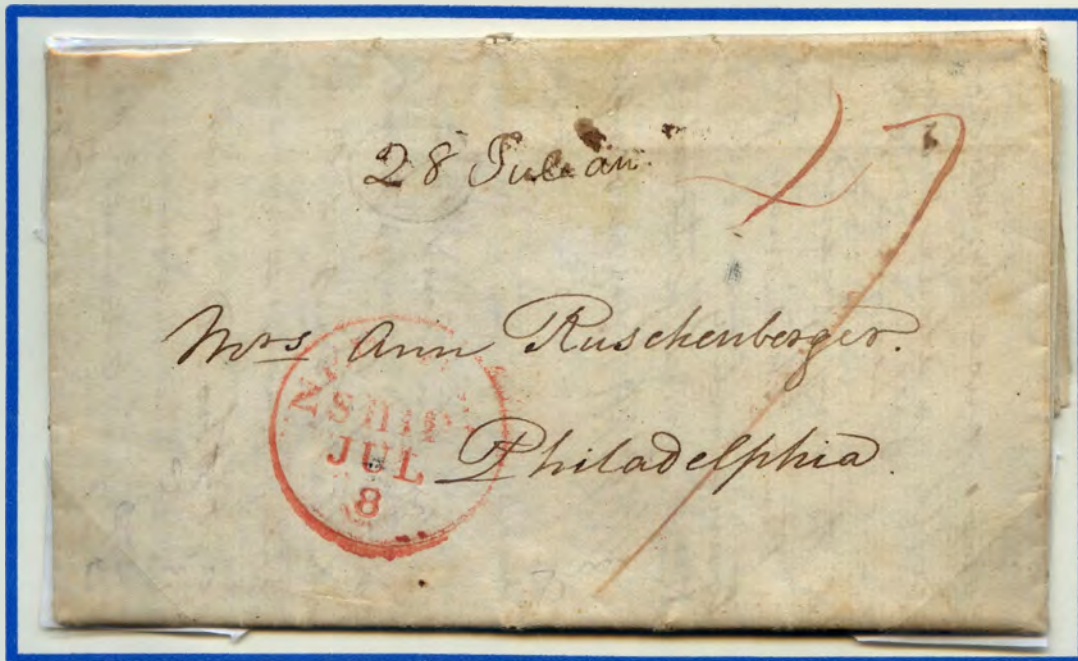 28 Julian
Mrs Ann Ruschenberger.
Philadelphia.
SHIP
JUL
8
7